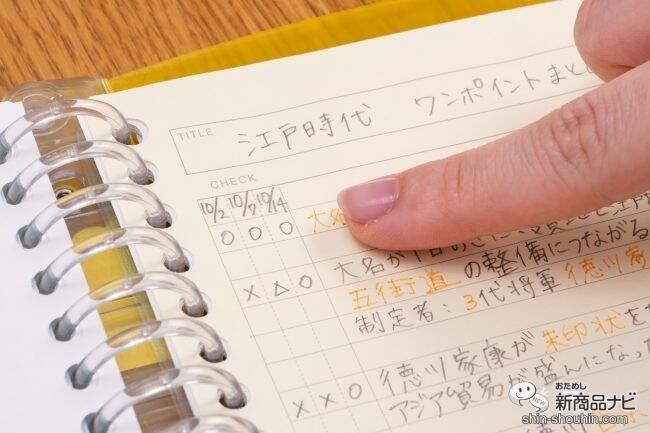 TITLE 江戸時代 ワンポイントまと
CHECK
10/2 10/9 10/14
○ ○ ○ 大名
大名が1
× △ ○ 五街道の整備につながる
制定者：3代将軍 徳川家
徳川家康が朱印状を
× × ○ アジア貿易が盛んになった
おためし
新商品ナビ
NEW
shin-shouhin.com